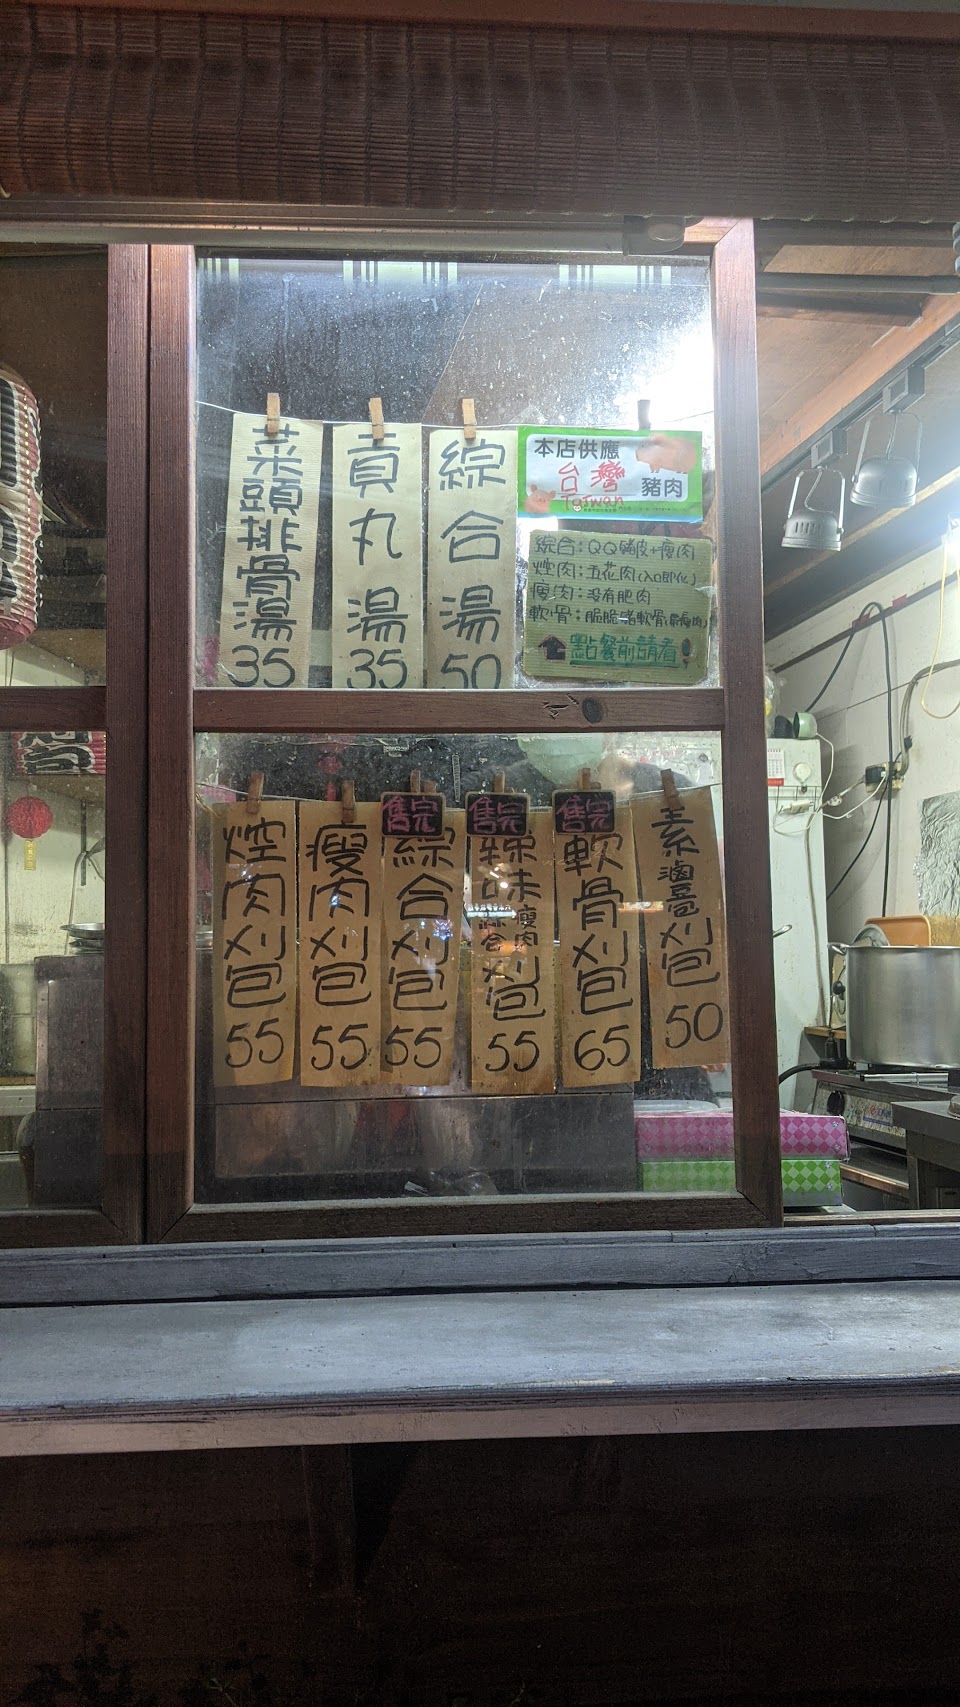 菜頭排骨湯
35
貢丸湯
35
綜合湯
50
本店供應
台灣
Taiwan
豬肉
綜合：QQ豬皮+瘦肉
焢肉：五花肉(入口即化)
瘦肉：沒有肥肉
軟骨：脆脆豬軟骨
點餐前請看
焢肉刈包
55
瘦肉刈包
55
售完
綜合刈包
55
售完
辣味
瘦肉
綜合
刈包
55
售完
軟骨刈包
65
素滷豆包刈包
50